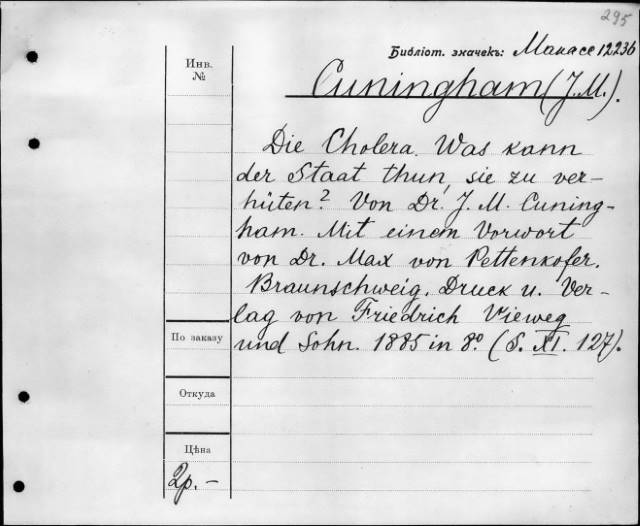 295
Библіот. значекъ: Манасс 12236
Инв.
№
Cuningham (J. M.).
Die Cholera. Was kann
der Staat thun, sie zu ver-
hüten? Von Dr. J. M. Cuning-
ham. Mit einem Vorwort
von Dr. Max von Pettenkofer.
Braunschweig. Druck u. Ver-
lag von Friedrich Vieweg
und Sohn. 1885 in 8º (S. XI. 127).
По заказу
Откуда
Цѣна
2р. -